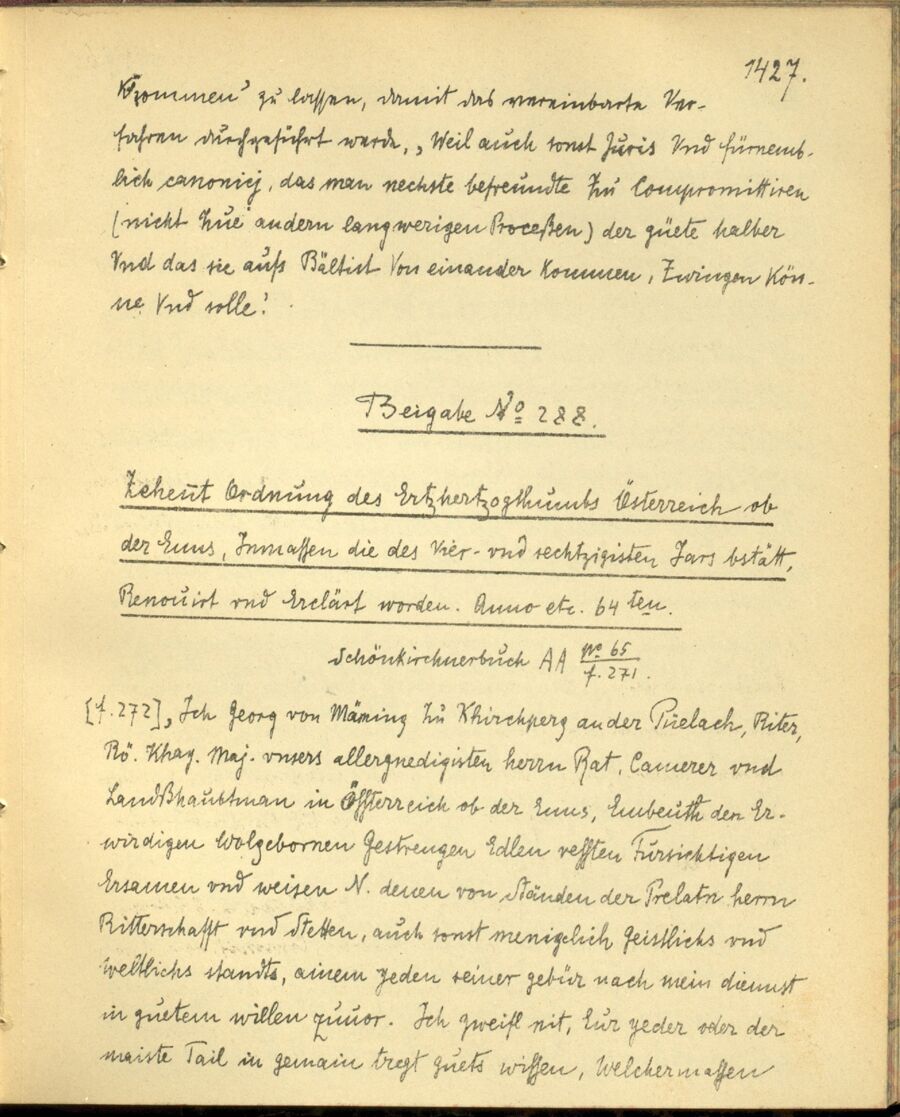 1427.
Kommen' zu lassen, damit das vereinbarte Ver-
fahren durchgeführt werde, „Weil auch sonst Juris Vnd fürnemb-
lich canonicj, das man nechste befreundte Zu Compromittiren
(nicht Zue andern langwerigen Proceßen) der güete halber
Vnd das sie aufs Bältist Von einander Kommen, Zwingen Kön-
ne Vnd solle!
Beigabe No 288.
Zehent Ordnung des Ertzhertzogthumbs Österreich ob
der Enns, Inmassen die des Vier- vnd sechtzigisten Jars bstätt,
Renouirt vnd Erclärt worden. Anno etc. 64 ten.
Schönkirchnerbuch AA No 65
f. 271.
[f. 272] „Ich Georg von Mäming Zu Khirchperg an der Püelach, Riter,
Rö. Khay. Maj. vnsers allergnedigisten herrn Rat, Camerer vnd
Landßhaubtman in Össterreich ob der Enns, Embeuth den Er-
wirdigen Wolgebornen Gestrengen Edlen vessten Fürsichtigen
Ersamen vnd weisen N. denen von Ständen der Prelatn herrn
Ritterschafft vnd Stetten, auch sonst menigclich Geistlichs vnd
weltlichs standts, ainem yeden seiner gebür nach mein diennst
in guetem willen zuuor. Ich zweifl nit, Eur yeder oder der
maiste Tail in gemain tregt guets wissen, Welchermassen